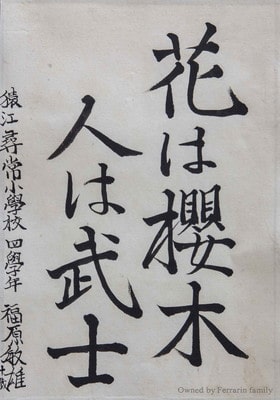 花は櫻木
人は武士
猿江尋常小學校 四學年 福原敏雄
Owned by Ferrario family